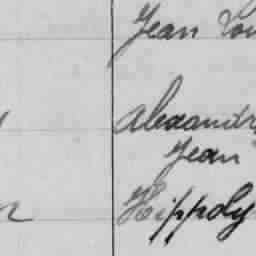 Jean Lou
Alexandr
Jean
Hippoly